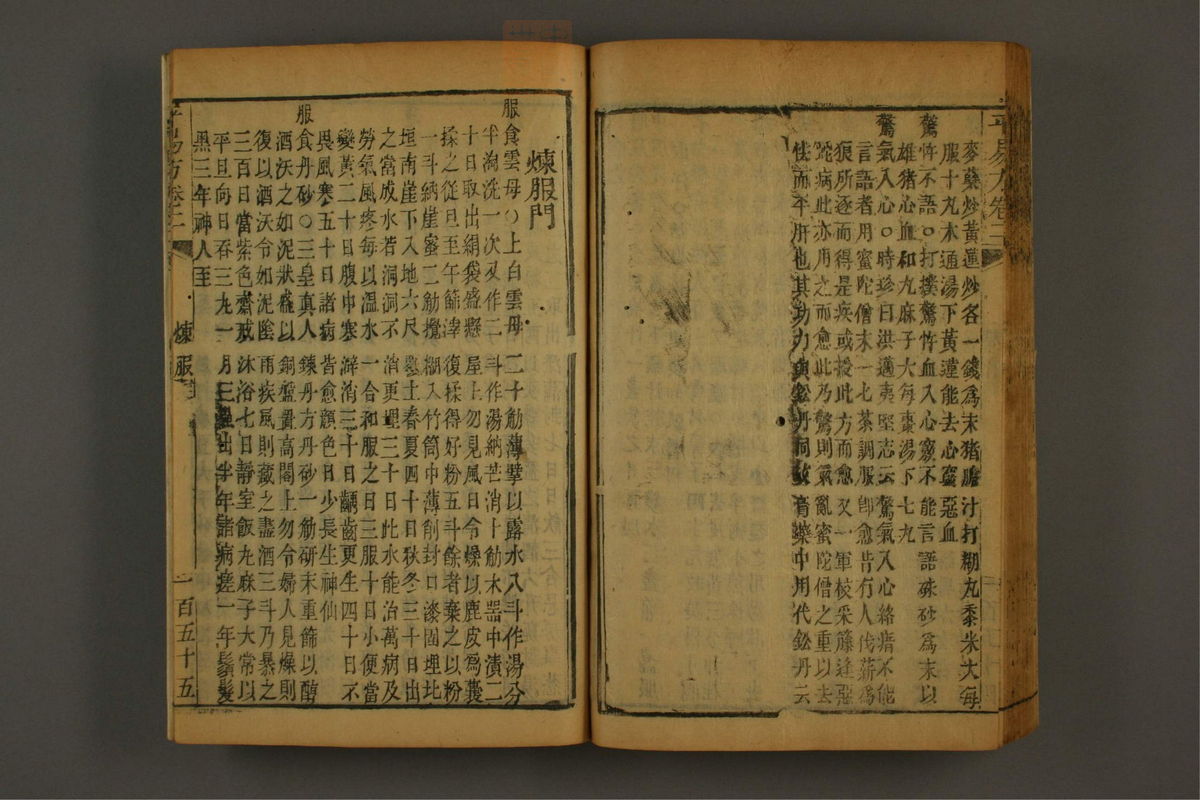 麥蘗炒黃連炒各一錢爲末猪膽汁打糊丸黍米大每
服十丸木通湯下黃連能去心竅惡血
驚忤不語○打撲驚忤血入心竅不能言語硃砂爲末以
雄猪心血和丸麻子大每棗湯下七丸
驚氣入心○時珍曰洪邁夷堅志云驚氣入心絡瘖不能
言語者用蜜陀僧末一匕茶調服卽愈昔有人伐薪爲
狼所逐而得是疾或授此方而愈又一軍校采藤逢惡
蛇病此亦用之而愈此乃驚則氣亂蜜陀僧之重以去
怯而平肝也其功力與鈆丹同故膏藥中用代鈆丹云
煉服門
服食雲母○上白雲母二十觔薄擘以露水八斗作湯分
半淘洗一次又作二斗作湯納芒消十觔木器中漬二
十日取出絹袋盛懸屋上勿見風日令燥以鹿皮爲囊
揉之從旦至午篩滓復揉得好粉五斗餘者棄之以粉
一斗納崖蜜二觔攪糊入竹筒中薄削封口漆固埋北
垣南崖下入地六尺覆土春夏四十日秋冬三十日出
之當成水若洞洞不消更埋三十日此水能治萬病及
勞氣風疼每以溫水一合和服之日三服十日小便當
變黃二十日腹中寒澼消三十日齲齒更生四十日不
畏風寒五十日諸病皆愈顏色日少長生神仙
服食丹砂○三皇真人鍊丹方丹砂一觔研末重篩以醇
酒沃之如泥狀盛以銅盤置高閣上勿令婦人見燥則
復以酒沃令如泥陰雨疾風則藏之盡酒三斗乃暴之
三百日當紫色齋戒沐浴七日靜室飯丸麻子大常以
平旦向日吞三丸一月三蟲出半年諸病瘥一年鬚髮
黑三年神人至
煉服
一百五十五